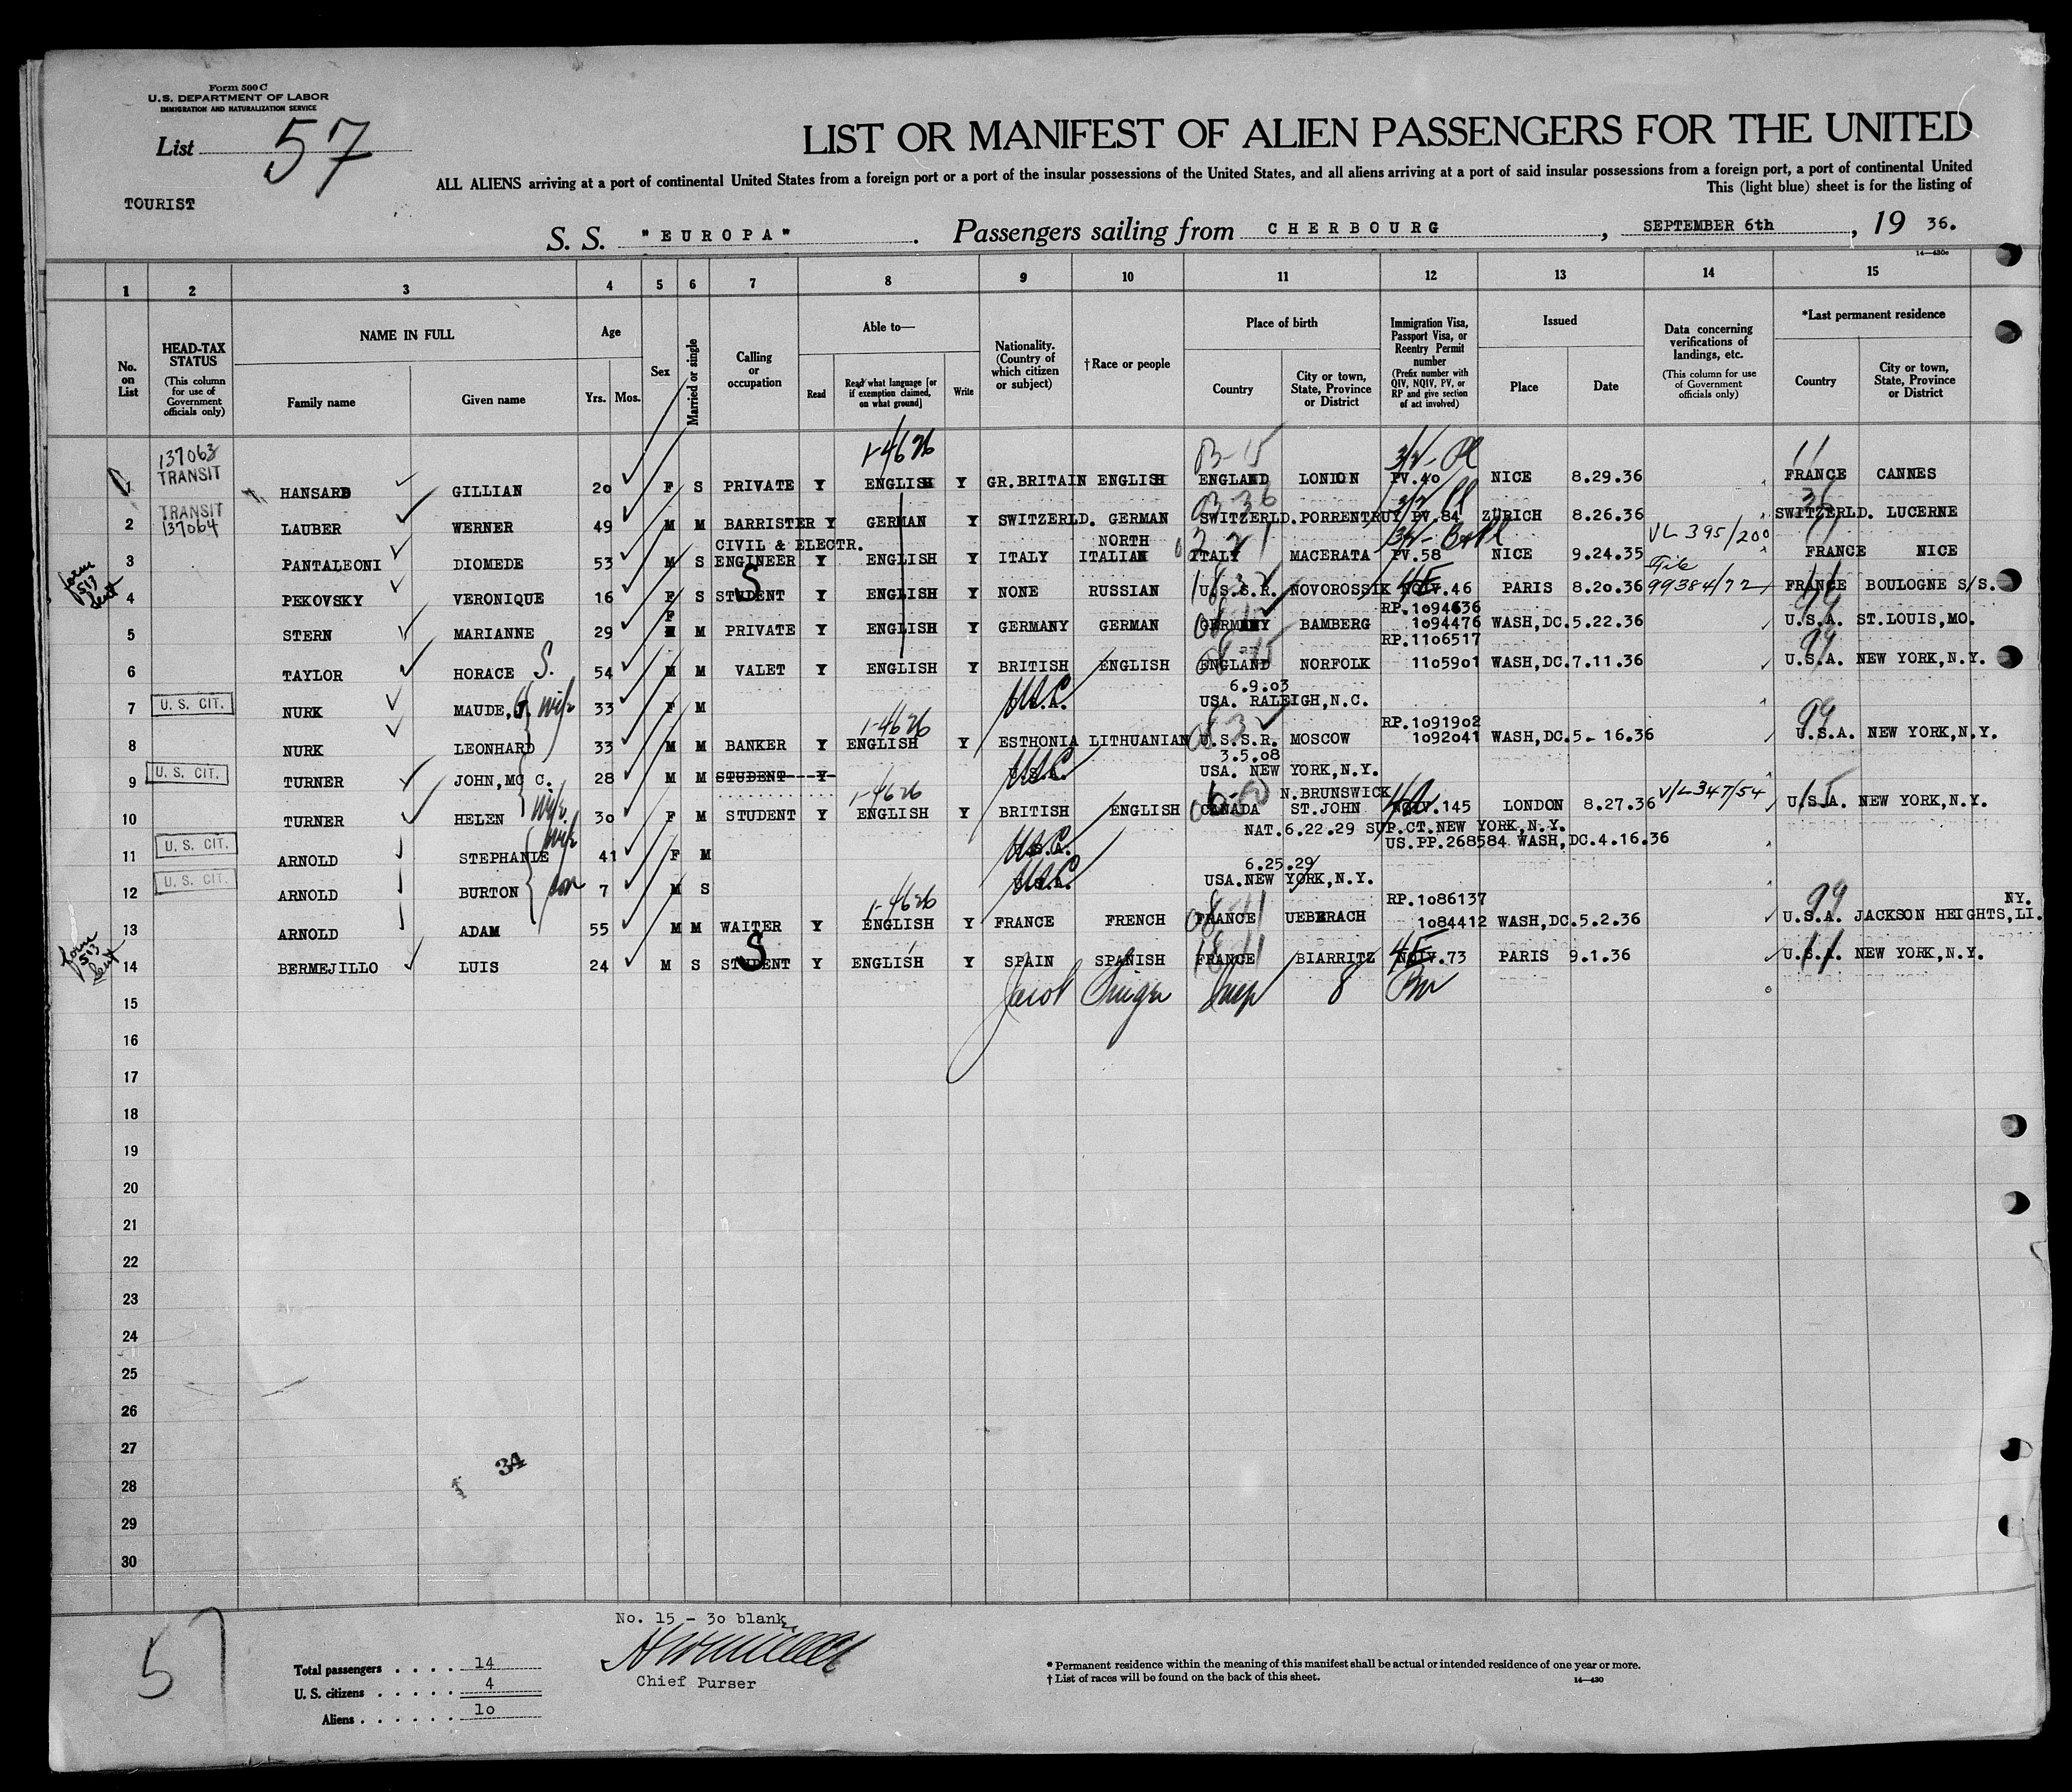 Form 500 C
U.S. DEPARTMENT OF LABOR
IMMIGRATION AND NATURALIZATION SERVICE
List 57
LIST OR MANIFEST OF ALIEN PASSENGERS FOR THE UNITED
ALL ALIENS arriving at a port of continental United States from a foreign port or a port of the insular possessions of the United States, and all aliens arriving at a port of said insular possessions from a foreign port, a port of continental United
This (light blue) sheet is for the listing of
TOURIST
S. S. "EUROPA" . Passengers sailing from CHERBOURG , SEPTEMBER 6th , 19 36.
14—430c
1 2 3 4 5 6 7 8 9 10 11 12 13 14 15
No. on List
HEAD-TAX STATUS (This column for use of Government officials only)
NAME IN FULL
Family name
Given name
Age
Yrs. Mos.
Sex
Married or single
Calling or occupation
Able to—
Read
Read what language [or if exemption claimed, on what ground]
Write
Nationality. (Country of which citizen or subject)
† Race or people
Place of birth
Country
City or town, State, Province or District
Immigration Visa, Passport Visa, or Reentry Permit number (Prefix number with QIV, NQIV, PV, or RP and give section of act involved)
Issued
Place
Date
Data concerning verifications of landings, etc. (This column for use of Government officials only)
*Last permanent residence
Country
City or town, State, Province or District
137063 1-4626 B-15 3/2- Pl 11
1 TRANSIT HANSARD GILLIAN 20 F S PRIVATE Y ENGLISH Y GR.BRITAIN ENGLISH ENGLAND LONDON PV.40 NICE 8.29.36 FRANCE CANNES
TRANSIT B 36 36
2 137064 LAUBER WERNER 49 M M BARRISTER Y GERMAN Y SWITZERLD. GERMAN SWITZERLD. PORRENTRUY PV.84 ZÜRICH 8.26.36 SWITZERLD. LUCERNE
CIVIL & ELECTR. NORTH VL 395/200
3 PANTALEONI DIOMEDE 53 M S ENGINEER Y ENGLISH Y ITALY ITALIAN ITALY MACERATA PV.58 NICE 9.24.35 FRANCE NICE
form 513 sent S 4E File
4 PEKOVSKY VERONIQUE 16 F S STUDENT Y ENGLISH Y NONE RUSSIAN U.S.S.R. NOVOROSSIK NQIV.46 PARIS 8.20.36 99384/72 FRANCE BOULOGNE S/S.
F RP.1094636 99
5 STERN MARIANNE 29 M M PRIVATE Y ENGLISH Y GERMANY GERMAN GERMANY BAMBERG 1094476 WASH,DC.5.22.36 U.S.A. ST.LOUIS,MO.
RP.1106517 99
6 TAYLOR HORACE S. 54 M M VALET Y ENGLISH Y BRITISH ENGLISH ENGLAND NORFOLK 1105901 WASH,DC.7.11.36 U.S.A. NEW YORK,N.Y.
6.9.03
7 U. S. CIT. NURK MAUDE, J. wife 33 F M U.S.A. USA. RALEIGH,N.C.
1-4626 RP.1091902 99
8 NURK LEONHARD 33 M M BANKER Y ENGLISH Y ESTHONIA LITHUANIAN U.S.S.R. MOSCOW 1092041 WASH,DC.5-16.36 U.S.A. NEW YORK,N.Y.
3.5.08
9 U. S. CIT. TURNER JOHN,MC C. 28 M M STUDENT---Y- U.S.A. USA. NEW YORK,N.Y.
1-4626 N.BRUNSWICK VL 347/54
10 TURNER HELEN wife 30 F M STUDENT Y ENGLISH Y BRITISH ENGLISH CANADA ST.JOHN NQIV.145 LONDON 8.27.36 U.S.A. NEW YORK,N.Y.
NAT.6.22.29 SUP.CT.NEW YORK,N.Y.
11 U. S. CIT. ARNOLD STEPHANIE wife 41 F M U.S.A. US.PP.268584 WASH,DC.4.16.36
6.25.29
12 U. S. CIT. ARNOLD BURTON son 7 M S U.S.A. USA.NEW YORK,N.Y.
1-4626 RP.1086137 99 NY.
13 ARNOLD ADAM 55 M M WAITER Y ENGLISH Y FRANCE FRENCH FRANCE UEBERACH 1084412 WASH,DC.5.2.36 U.S.A. JACKSON HEIGHTS,LI.
form 513 sent S 4E
14 BERMEJILLO LUIS 24 M S STUDENT Y ENGLISH Y SPAIN SPANISH FRANCE BIARRITZ NQIV.73 PARIS 9.1.36 U.S.A. NEW YORK,N.Y.
15 Jacob Singer Insp 8
16
17
18
19
20
21
22
23
24
25
26
27
34
28
29
30
57
No. 15 - 30 blank
Chief Purser
Total passengers . . . . 14
U. S. citizens . . . . . 4
Aliens . . . . . . 10
* Permanent residence within the meaning of this manifest shall be actual or intended residence of one year or more.
† List of races will be found on the back of this sheet.
14—430